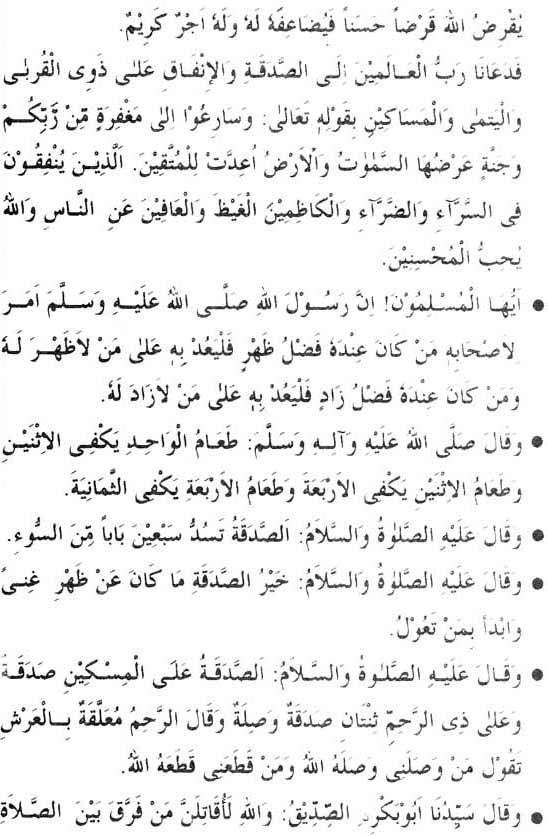 يُقْرِضُ اللهَ قَرْضاً حَسَناً فَيُضَاعِفَهٗ لَهٗ وَلَهٗ اَجْرٌ كَرِيْمٌ.
فَدَعَانَا رَبُّ الْعَـالَمِيْنَ اِلَـى الصَّدَقَـةِ وَالْاِنْفَـاقِ عَلـٰى ذَوِى الْقُرْبٰى
وَالْيَتٰمٰى وَالْمَسَاكِيْنِ بِقَوْلِهٖ تَعَالٰى: وَسَارِعُوْا اِلٰى مَغْفِرَةٍ مِّنْ رَّبِّكُـمْ
وَجَنَّةٍ عَرْضُهَا السَّمٰوٰتُ وَالْاَرْضُ اُعِدَّتْ لِلْمُتَّقِيْنَ. اَلَّذِيْـنَ يُنْفِقُـوْنَ
فِى السَّرَّآءِ وَالضَّرَّآءِ وَالْكَاظِمِيْنَ الْغَيْظَ وَالْعَافِيْنَ عَنِ النَّاسِ وَاللهُ
يُحِبُّ الْمُحْسِنِيْنَ.
● اَيُّهَـا الْمُسْـلِمُوْنَ! اِنَّ رَسُـوْلَ اللهِ صَلَّـى اللهُ عَلَيْـهِ وَسَـلَّمَ اَمَـرَ
لِاَصْحَابِهٖ مَنْ كَانَ عِنْدَهٗ فَضْلُ ظَهْرٍ فَلْيَعُدْ بِهٖ عَلٰى مَنْ لَاظَهْـرَ لَـهٗ
وَمَنْ كَانَ عِنْدَهٗ فَضْلُ زَادٍ فَلْيَعُدْ بِهٖ عَلٰى مَنْ لَازَادَ لَهٗ.
● وَقَالَ صَلَّى اللهُ عَلَيْهِ وَآلـهِ وَسَـلَّمَ: طَعَـامُ الْوَاحِـدِ يَكْفِـى الْاِثْنَيْـنِ
وَطَعَامُ الْاِثْنَيْنِ يَكْفِى الْاَرْبَعَةَ وَطَعَامُ الْاَرْبَعَةِ يَكْفِى الثَّمَانِيَةَ.
● وَقَالَ عَلَيْهِ الصَّلٰوةُ وَالسَّلَامُ: اَلصَّدَقَةُ تَسُدُّ سَبْعِيْنَ بَاباً مِّنَ السُّوءِ.
● وَقَالَ عَلَيْهِ الصَّلٰوةُ وَالسَّلَامُ: خَيْرُ الصَّدَقَةِ مَا كَانَ عَنْ ظَهْرِ غِنـىً
وَابْدَأْ بِمَنْ تَعُوْلُ.
● وَقَـالَ عَلَيْـهِ الصَّلـٰوةُ وَالسَّـلَامُ: اَلصَّدَقَـةُ عَلَـى الْمِسْكِيْنِ صَدَقَـةٌ
وَعَلٰى ذِى الرَّحِمِّ ثِنْتَانِ صَدَقَةٌ وَصِلَةٌ وَقَالَ الرَّحِمُ مُعَلَّقَةٌ بِـالْعَرْشِ
تَقُوْلُ مَنْ وَصَلَنِى وَصَلَهُ اللهُ وَمَنْ قَطَعَنِى قَطَعَهُ اللهُ.
● وَقَالَ سَيِّدُنَا اَبُوْبَكْرِ الصِّدِّيْقُ: وَاللهِ لَأُقَاتِلَنَّ مَنْ فَرَّقَ بَيْنَ الصَّـلَاةِ